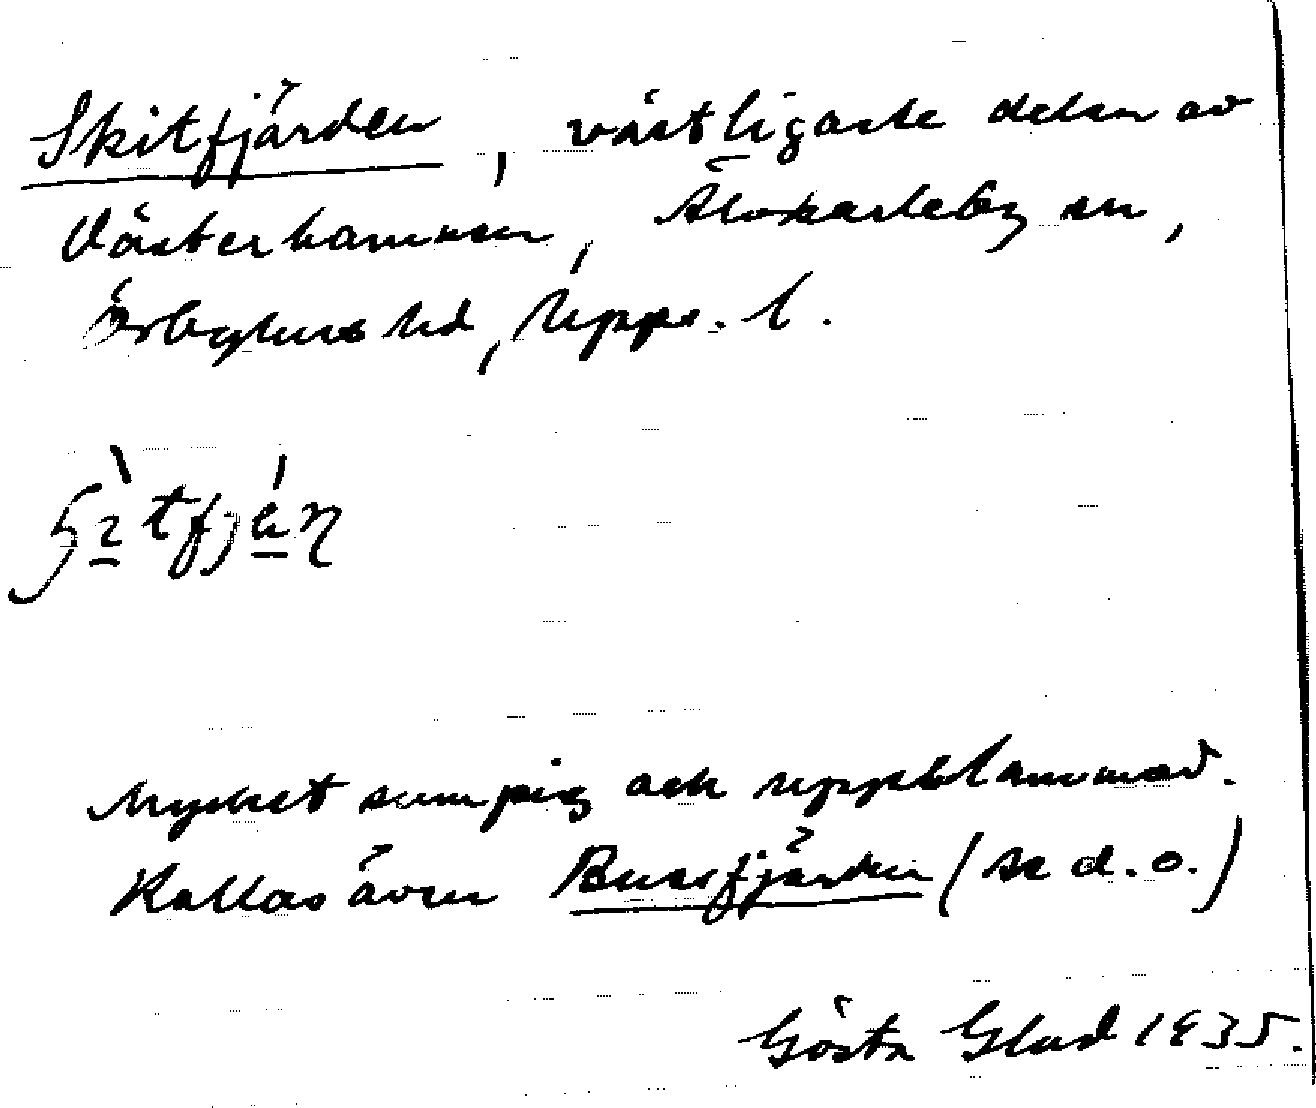 Skitfjärden, västligaste delen av
Västerhamnen, Älvkarleby sn,
Örbyhus hd, Upps. l.
Mycket sumpig och uppslammad.
Kallas även Bussfjärden (se d.o.)
Gösta Glad 1935.